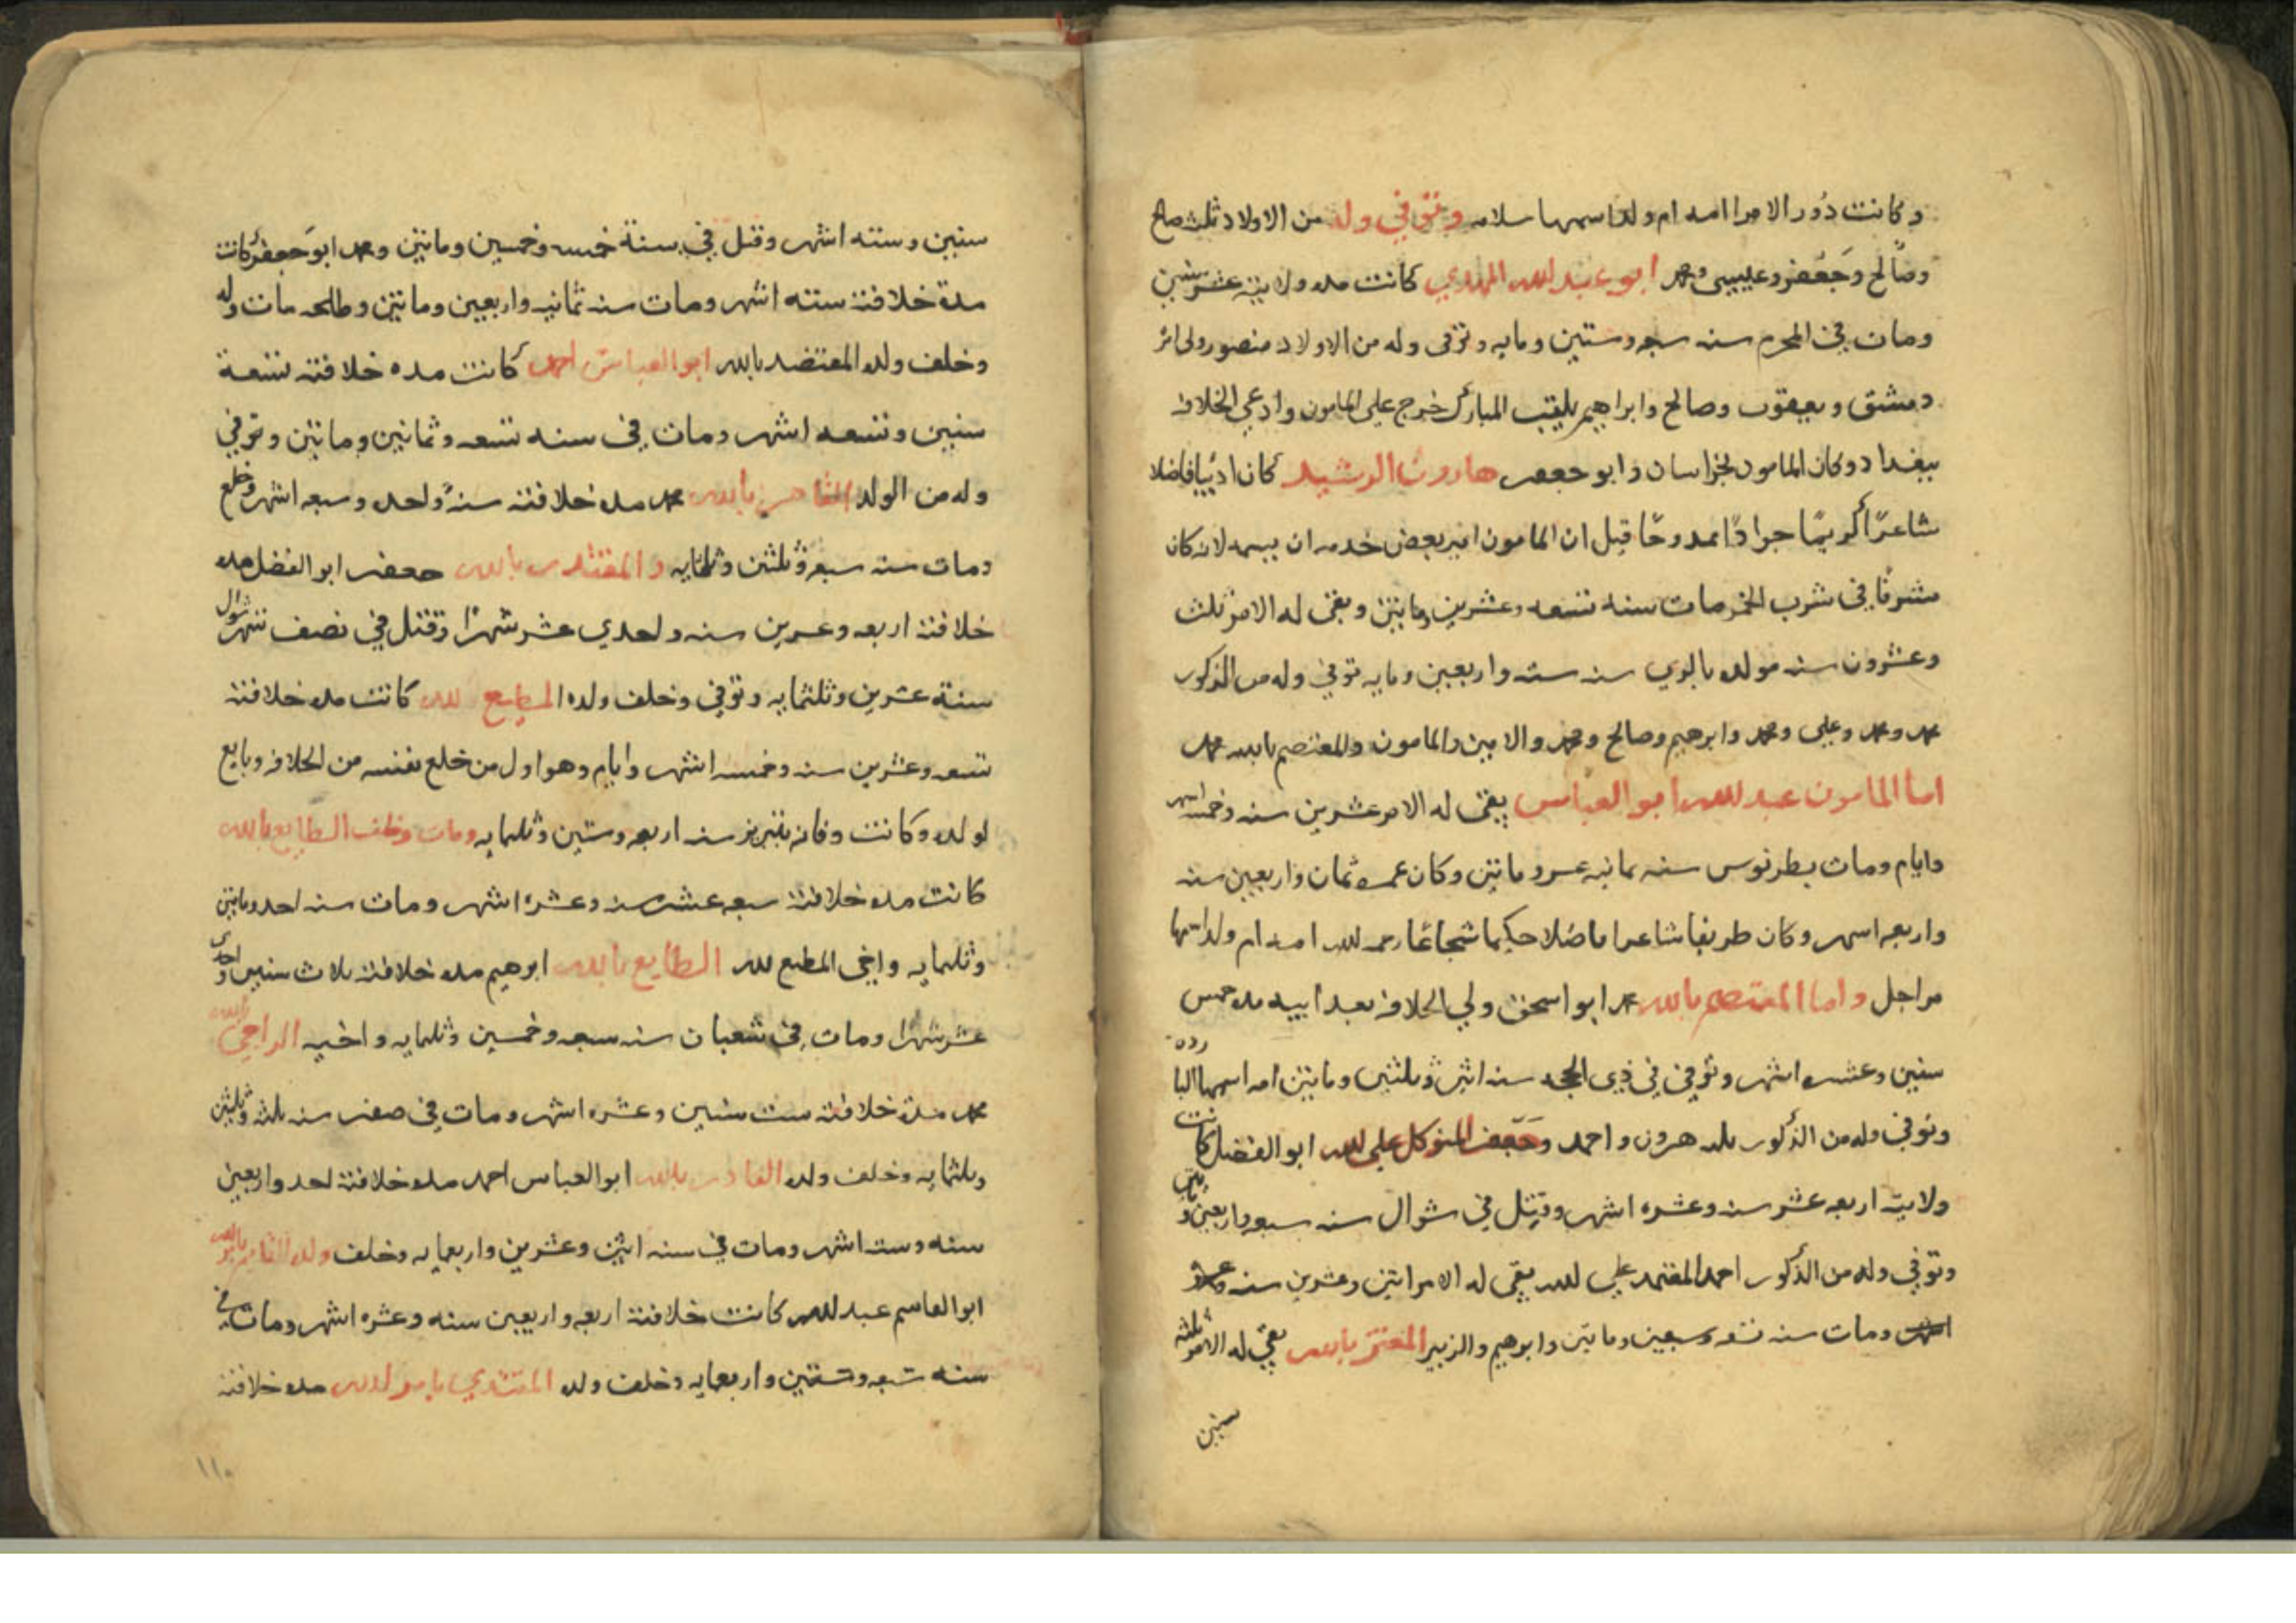 وكانت دور الامرا امه ام ولد اسمها سلامه وتوفي وله من الاولاد ثلث صالح
وصالح وجعفر وعيسى ومحمد ابو عبد الله المهدي كانت مده ولايته عشر سنين
ومات في المحرم سنه سبعه وستين ومايه وتوفى وله من الاولاد منصور ولي امر
دمشق ويعيقوب وصالح وابراهيم يلقب المبارك خرج على المامون وادعى الخلافه
ببغداد وكان المامون بخراسان وابو جعفر هارون الرشيد كان اديبا فاضلا
شاعرًا كريمًا جوادًا ممدوحًا قيل ان المامون امر بعض خدمه ان يسمه لانه كان
مسرفًا في شرب الخمر مات سنه تسعه وعشرين ومايتين وبقى له الامر ثلث
وعشرون سنه مولده بالري سنه سته واربعين ومايه توفي وله من الذكور
محمد ومحمد وعلى ومحمد وابرهيم وصالح ومحمد والامين والمامون والمعتصم بالله محمد
اما المامون عبد الله ابو العباس بقى له الامر عشرين سنه وخمسه اشهر
وايام ومات بطرنوس سنه ثمانيه عشر ومايتين وكان عمره ثمان واربعين سنه
واربعه اشهر وكان ظريفا شاعرا فاضلا حكيما شجاعًا رحمه الله امه ام ولد اسمها
مراجل واما المعتصم بالله محمد ابو اسحق ولي الخلافه بعد ابيه مده خمس
سنين وعشره اشهر وتوفي في ذي الحجه سنه اثنين وثلثين ومايتين امه اسمها البارده
وتوفي وله من الذكور ثلثه هرون واحمد وجعفر المتوكل على الله ابو الفضل كانت
ولايته اربعه عشر سنه وعشره اشهر وقتل في شوال سنه سبعه واربعين ومايتين
وتوفي وله من الذكور احمد المعتمد على الله بقى له الامر اثنين وعشرين سنه
ومات سنه تسعه وسبعين ومايتين وابرهيم والزبير المعتز بالله بقي له الامر ثلثه
سنين
سنين وسته اشهر وقتل في سنة خمسه وخمسين ومايتين ومحمد ابو جعفر كانت
مدة خلافته سته اشهر ومات سنه ثمانيه واربعين ومايتين وطلحه مات وله
وخلف ولده المعتضد بالله ابو العباس احمد كانت مده خلافته تسعة
سنين وتسعه اشهر ومات في سنه تسعه وثمانين ومايتين وتوفي
وله من الولد القاهر بالله محمد مده خلافته سنةً واحده وسبعه اشهر وخلع
ومات سنه سبعه وثلثين وثلثمايه والمقتدر بالله جعفر ابو الفضل مده
خلافته اربعه وعشرين سنه واحدي عشر شهرًا وقتل في نصف شهر شوال
سنة عشرين وثلثمايه وتوفي وخلف ولده المطيع لله كانت مده خلافته
تسعه وعشرين سنه وخمسه اشهر وايام وهو اول من خلع نفسه من الخلافه وبايع
لولده وكانت وفاته بتبريز سنه اربعه وستين وثلثمايه ومات وخلف الطايع بالله
كانت مده خلافته سبعه عشر سنه وعشره اشهر ومات سنه احد ومايتين
وثلثمايه واخى المطيع لله الطايع بالله ابرهيم مده خلافته ثلاث سنين واحدى
عشر شهرًا ومات في شعبان سنه سبعه وخمسين وثلثمايه واخيه الراجي بالله
محمد مدة خلافته ست سنين وعشره اشهر ومات في صفر سنه ثلثه وثلثين
وثلثمايه وخلف ولده القادر بالله ابو العباس احمد مده خلافته احد واربعين
سنه وسته اشهر ومات في سنه اثنين وعشرين واربعمايه وخلف ولده القايم بالله
ابو القاسم عبد الله كانت خلافته اربعه واربعين سنه وعشره اشهر ومات في
سنه سبعه وستين واربعمايه وخلف ولده المقتدي بامر الله مده خلافته
١١٠